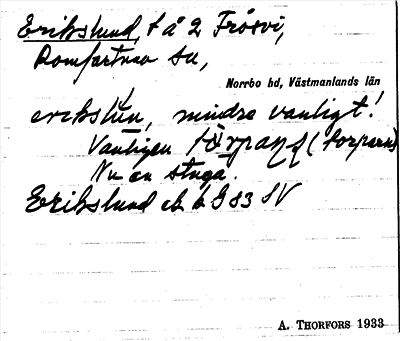 Erikslund, t å 2 Frösvi,
Romfartuna sn,
Norrbo hd, Västmanlands län
erikslún, mindre vanligt!
Vanligen (torparn)
Nu en stuga.
Erikslund ek bG 83 SV
A. THORFORS 1933